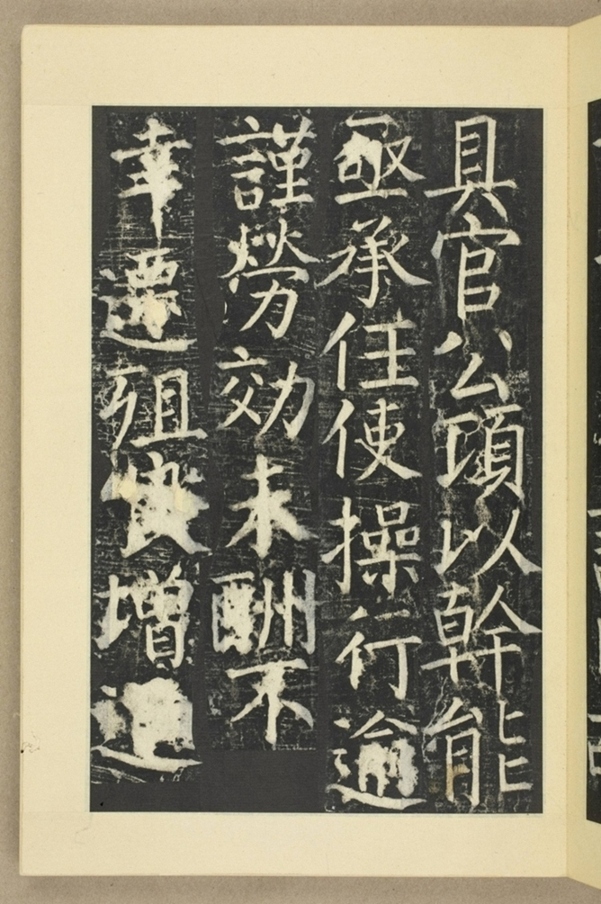 具官公頊以幹能
亟承任使操行逾
謹勞効未酬不
幸遷殂良增